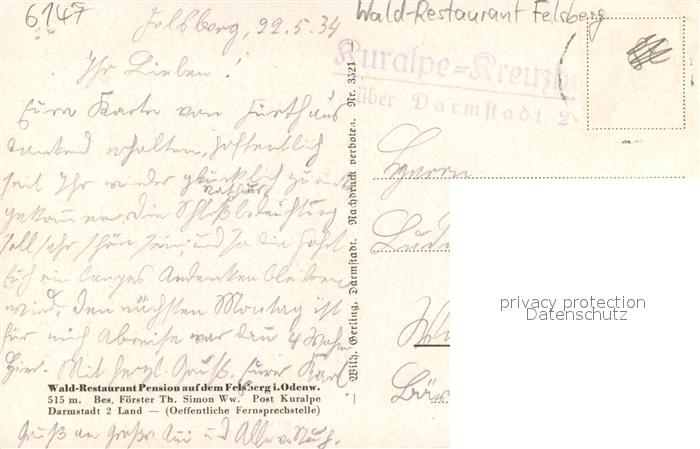 6147
Wald-Restaurant Felsberg
Felsberg, 22.5.34
Ihr Lieben!
Eure Karte von
dankend erhalten, hoffentlich
seid Ihr wieder glücklich zurück
gekommen. Die Schloßbeleuchtung
soll sehr schön sein, und so die Fahrt
Euch ein langes Andenken bleiben
wird. Den nächsten Montag ist
für mich Abreise war dann 4 Wochen
hier. Mit herzl. Gruß Euer Karl
Wald-Restaurant Pension auf dem Felsberg i. Odenw.
515 m. Bes. Förster Th. Simon Ww. Post Kuralpe
Darmstadt 2 Land — (Oeffentliche Fernsprechstelle)
Gruß an und
Wilh. Gerling, Darmstadt. Nachdruck verboten. Nr. 3521
Kuralpe=Kreuzho
über Darmstadt 2
Herrn
privacy protection
Datenschutz